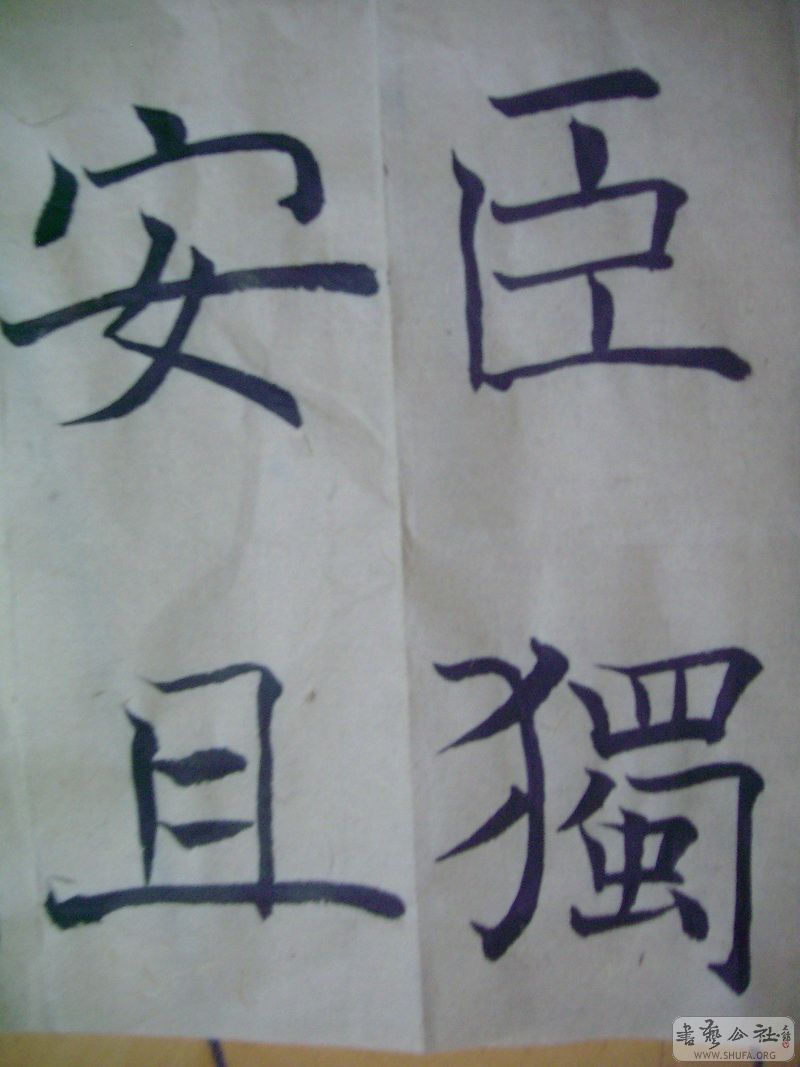 臣獨
安且
書藝公社
WWW.SHUFA.ORG